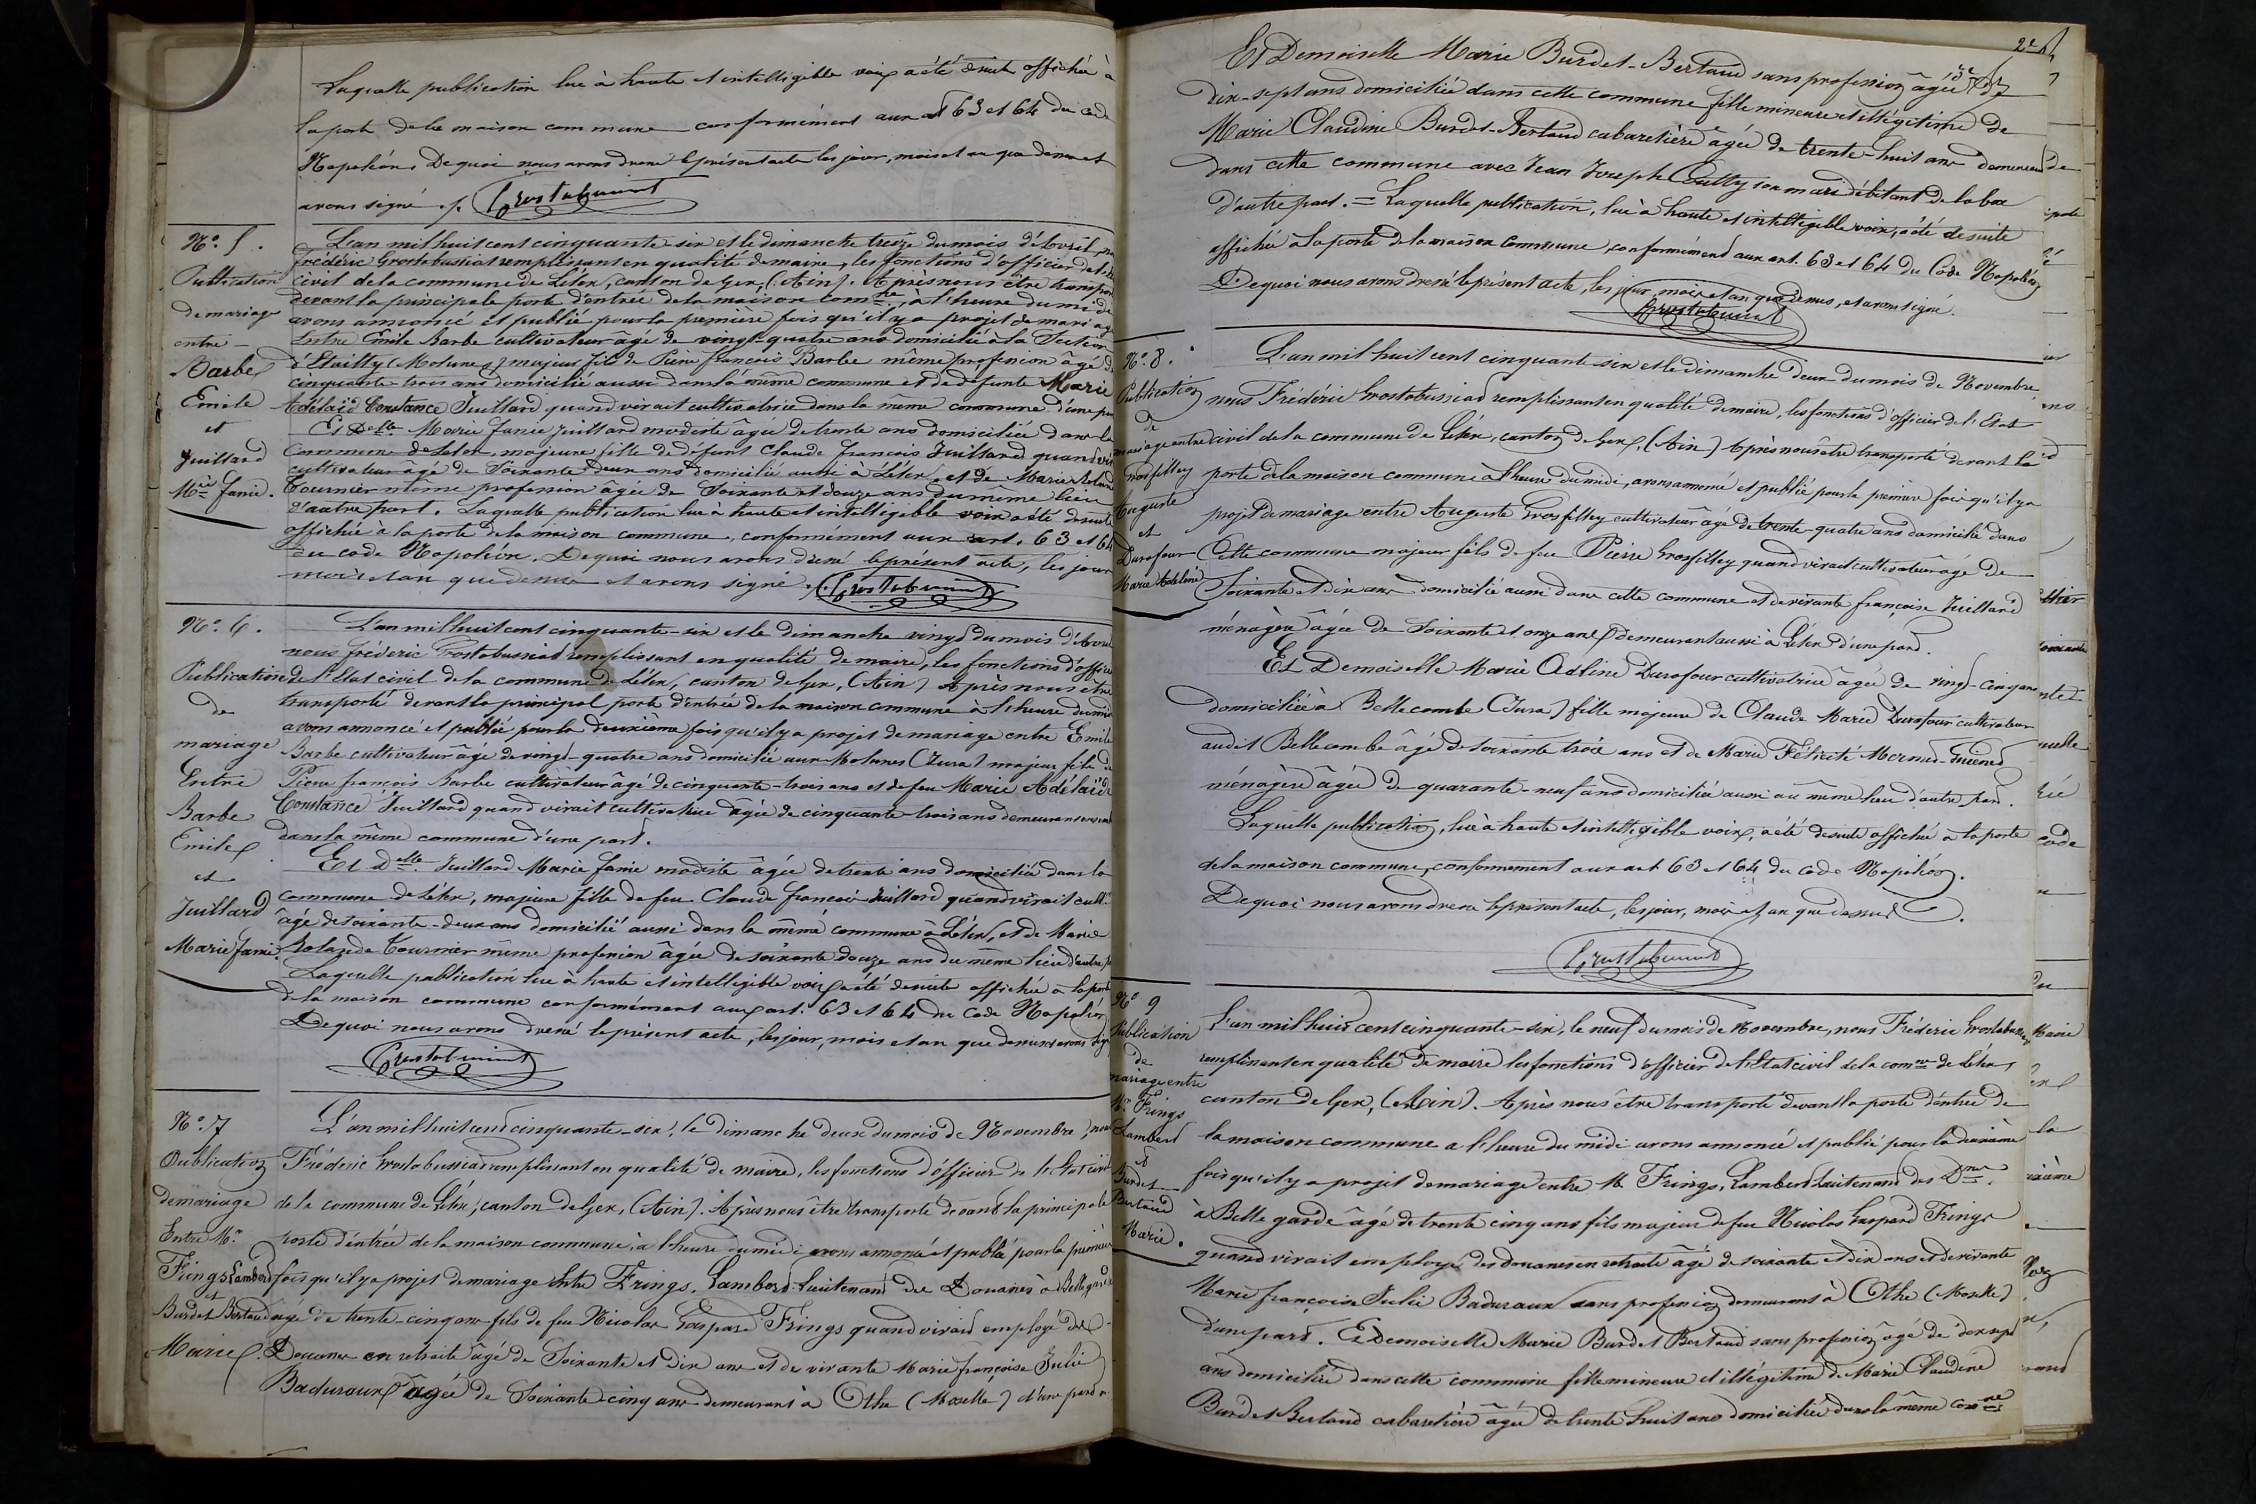 Laquelle publication lue à haute et intelligible voix a été de suite affichée à
la porte de la maison commune conformément aux art 63 et 64 du code
Napoléon. De quoi nous avons dressé le présent acte les jour, mois et an que dessus et
avons signé ./. Grostabussiat
N°. 5.
Publication
de mariage
entre
Barbe
Emile
et
Juillard
Mie fanie.
L'an mil huit cent cinquante-six et le dimanche treize du mois d'Avril, nous
frédéric Grostabussiat remplissant en qualité de maire, les fonctions d'officier de l'état
civil de la commune de Lélex, canton de Gex, (Ain). Après nous être transporté
devant la principale porte d'entrée de la maison comne, à l'heure du midi
avons annoncé et publié pour la première fois qu'il y a projet de mariage
Entre Emile Barbe cultivateur âgé de vingt-quatre ans domicilié à la Section
(Molunes) majeur fils de Pierre françois Barbe même profession âgé de
cinquante-trois ans domicilié aussi dans la même commune et de défunte Marie
Adélaïd Constance Juillard quand vivait cultivatrice dans la même commune d'une part
Et Delle Marie fanie Juillard modiste âgée de trente ans domiciliée dans la
Commune de Lélex, majeure fille de défunt Claude françois Juillard quand vivait
cultivateur âgé de Soixante-deux ans domicilié aussi à Lélex, et de Marie Rolande
Tournier même profession âgée de Soixante et douze ans du même lieu
d'autre part. Laquelle publication lue à haute et intelligible voix a été de suite
affichée à la porte de la maison commune, conformément aux art. 63 et 64
du code Napoléon. De quoi nous avons dressé le présent acte, les jour
mois et an que dessus et avons signé ./. Grostabussiat
N°. 6.
Publication
de
mariage
Entre
Barbe
Emile
et
Juillard
Marie fanie.
L'an mil huit cent cinquante-six et le dimanche vingt du mois d'Avril
nous frédéric Grostabussiat remplissant en qualité de maire, les fonctions d'officier
de l'Etat civil de la commune de Lélex, canton de Gex, (Ain) Après nous être
transporté devant la principal porte d'entrée de la maison commune à l'heure du midi
avons annoncé et publié pour la deuxième fois qu'il y a projet de mariage entre Emile
Barbe cultivateur âgé de vingt-quatre ans domicilié aux Molunes (Jura) majeur fils de
Pierre françois Barbe cultivateur âgé de cinquante-trois ans et de feu Marie Adélaïde
Constance Juillard quand vivait cultivatrice âgée de cinquante trois ans demeurant
dans la même commune d'une part.
Et Delle Juillard Marie fanie modiste âgée de trente ans domiciliée dans la
commune de Lélex, majeure fille de feu Claude françois Juillard quand vivait cultr
âgé de soixante-deux ans domicilié aussi dans la même commune à Lélex, et de Marie
Rolande Tournier même profession âgée de soixante douze ans du même lieu d'autre part
Laquelle publication lue à haute et intelligible voix a été de suite affichée à la porte
de la maison commune conformément aux art. 63 et 64 du Code Napoléon
De quoi nous avons dressé le présent acte, les jour, mois et an que dessus et avons signé
Grostabussiat
N°. 7
Publication
de mariage
Entre Mr
Frings Lambert
et
Burdet Bertaud
Marie.
L'an mil huit cent cinquante-six, le dimanche deux du mois de Novembre, nous
Fréderic Grostabussiat remplissant en qualité de maire, les fonctions d'officier de l'Etat civil
de la commune de Lélex, canton de Gex, (Ain). Après nous être transporté devant la principale
porte d'entrée de la maison commune, à l'heure du midi avons annoncé et publié pour la première
fois qu'il y a projet de mariage Entre Frings, Lambert Lieutenant des Douanes à Bellegarde
âgé de trente-cinq ans fils de feu Nicolas Gaspard Frings quand vivait employé des
Douanes en retraite âgé de Soixante et dix ans et de vivante Marie françoise Julie
Baduraux âgée de Soixante-cinq ans demeurant à Othe (Moselle) d'une part
2e
Et Demoiselle Marie Burdet-Bertaud sans profession âgée de
dix-sept ans domiciliée dans cette commune fille mineure et illégitime de
Marie Claudine Burdet-Bertaud cabaretière âgée de trente-huit ans demeurant
dans cette commune avec Jean Joseph son mari débitant de tabac
d'autre part. = Laquelle publication, lue à haute et intelligible voix, a été de suite
affichée à la porte de la maison Commune, conformément aux art. 63 et 64 du Code Napoléon
De quoi nous avons dressé le présent acte, les jour, mois et an que dessus, et avons signé.
Grostabussiat
N°. 8.
Publication
de
mariage entre
Grosfilley
Auguste
et
Durafour
Marie Adeline
L'an mil huit cent cinquante-six et le dimanche deux du mois de Novembre,
nous Frédéric Grostabussiat remplissant en qualité de maire, les fonctions d'officier de l'Etat
civil de la commune de Lélex, canton de Gex, (Ain) Après nous être transporté devant la
porte de la maison commune à l'heure du midi, avons annoncé et publié pour la première fois qu'il y a
projet de mariage entre Auguste Grosfilley cultivateur âgé de trente-quatre ans domicilié dans
Cette commune majeur fils de feu Pierre Grosfilley quand vivait cultivateur âgé de
Soixante et dix ans domicilié aussi dans cette commune et de vivante françoise Juillard
ménagère âgée de Soixante et onze ans demeurant aussi à Lélex d'une part.
Et Demoiselle Marie Adeline Durafour cultivatrice âgée de vingt-cinq ans
domiciliée à Bellecombe (Jura) fille majeure de Claude Marie Durafour cultivateur
audit Bellecombe âgé de soixante trois ans et de Marie Félicité
ménagère âgée de quarante-neuf ans domiciliée aussi au même lieu d'autre part.
Laquelle publication, lue à haute et intelligible voix, a été de suite affiché à la porte
de la maison commune, conformement aux art 63 et 64 du Code Napoléon.
De quoi nous avons dressé le présent acte, les jour, mois et an que dessus.
Grostabussiat
N° 9
Publication
de
mariage entre
Mr Frings
Lambert
et
Burdet
Bertaud
Marie.
L'an mil huit cent cinquante-six, le neuf du mois de Novembre, nous Fréderic Grostabussiat
remplissant en qualité de maire les fonctions d'officier de l'Etat civil de la comne de Lélex,
canton de Gex, (Ain). Après nous être transporté devant la porte d'entrée de
la maison commune a l'heure du midi avons annoncé et publié pour la deuxième
fois qu'il y a projet de mariage entre M. Frings, Lambert Lieutenant des Dnes
à Bellegarde âgé de trente cinq ans fils majeur de feu Nicolas Gaspard Frings
quand vivait employé des douanes en retraite âgé de soixante et dix ans et de vivante
Marie françoise Julie Baduraux sans profession demeurant à Othe (Moselle)
d'une part. Et Demoiselle Marie Burdet Bertaud sans profession âgé de dix-sept
ans domiciliée dans cette commune fille mineure et illégitime de Marie Claudine
Burdet Bertaud cabaretière âgée de trente huit ans domiciliée dans la même comne